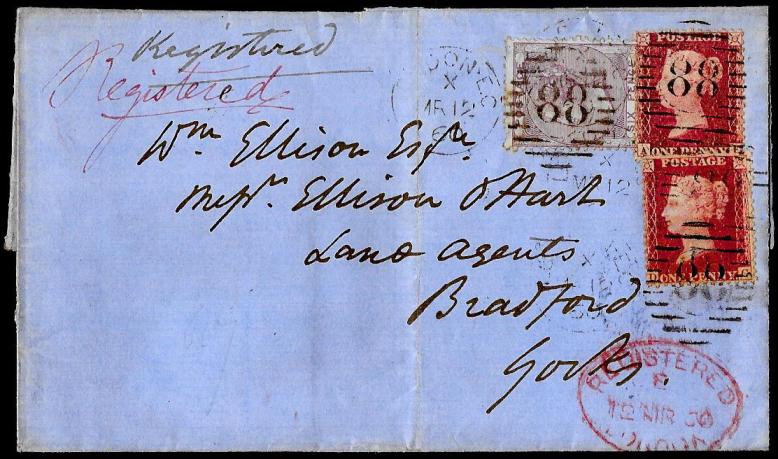 Registered
Registered
Wm Ellison Esqre
Messrs Ellison & Hart
Land Agents
Bradford
Yorks.
MR 12
88
POSTAGE
88
A ONE PENNY
POSTAGE
88
ONE PENNY
X
MR 12
REGISTERED
12 MR 56
LONDON